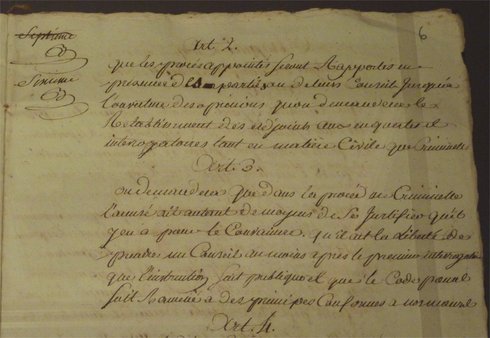 6
Septieme
Sixieme
Art. 2.
que les procès appointés seront Rapportés en
présence des parties, ou de leurs Conseils jusqu'à
Louverture des opinions quon demandera le
Retablissement des adjoints aux enquertes et
interrogatoires tant en matière Civile que Criminelle
Art. 3.
on demandera que dans la procédure Criminelle
l'accusé ait autant de moyens de Se Justifier qu'il
y en a pour le Convaincre, qu'il ait la liberté de
prendre un Conseil au moins après le premier interrogatoire
que l'instruction soit publique et que le Code pénal
soit Ramené à des principes Conformes a nos mœurs
Art. 4.